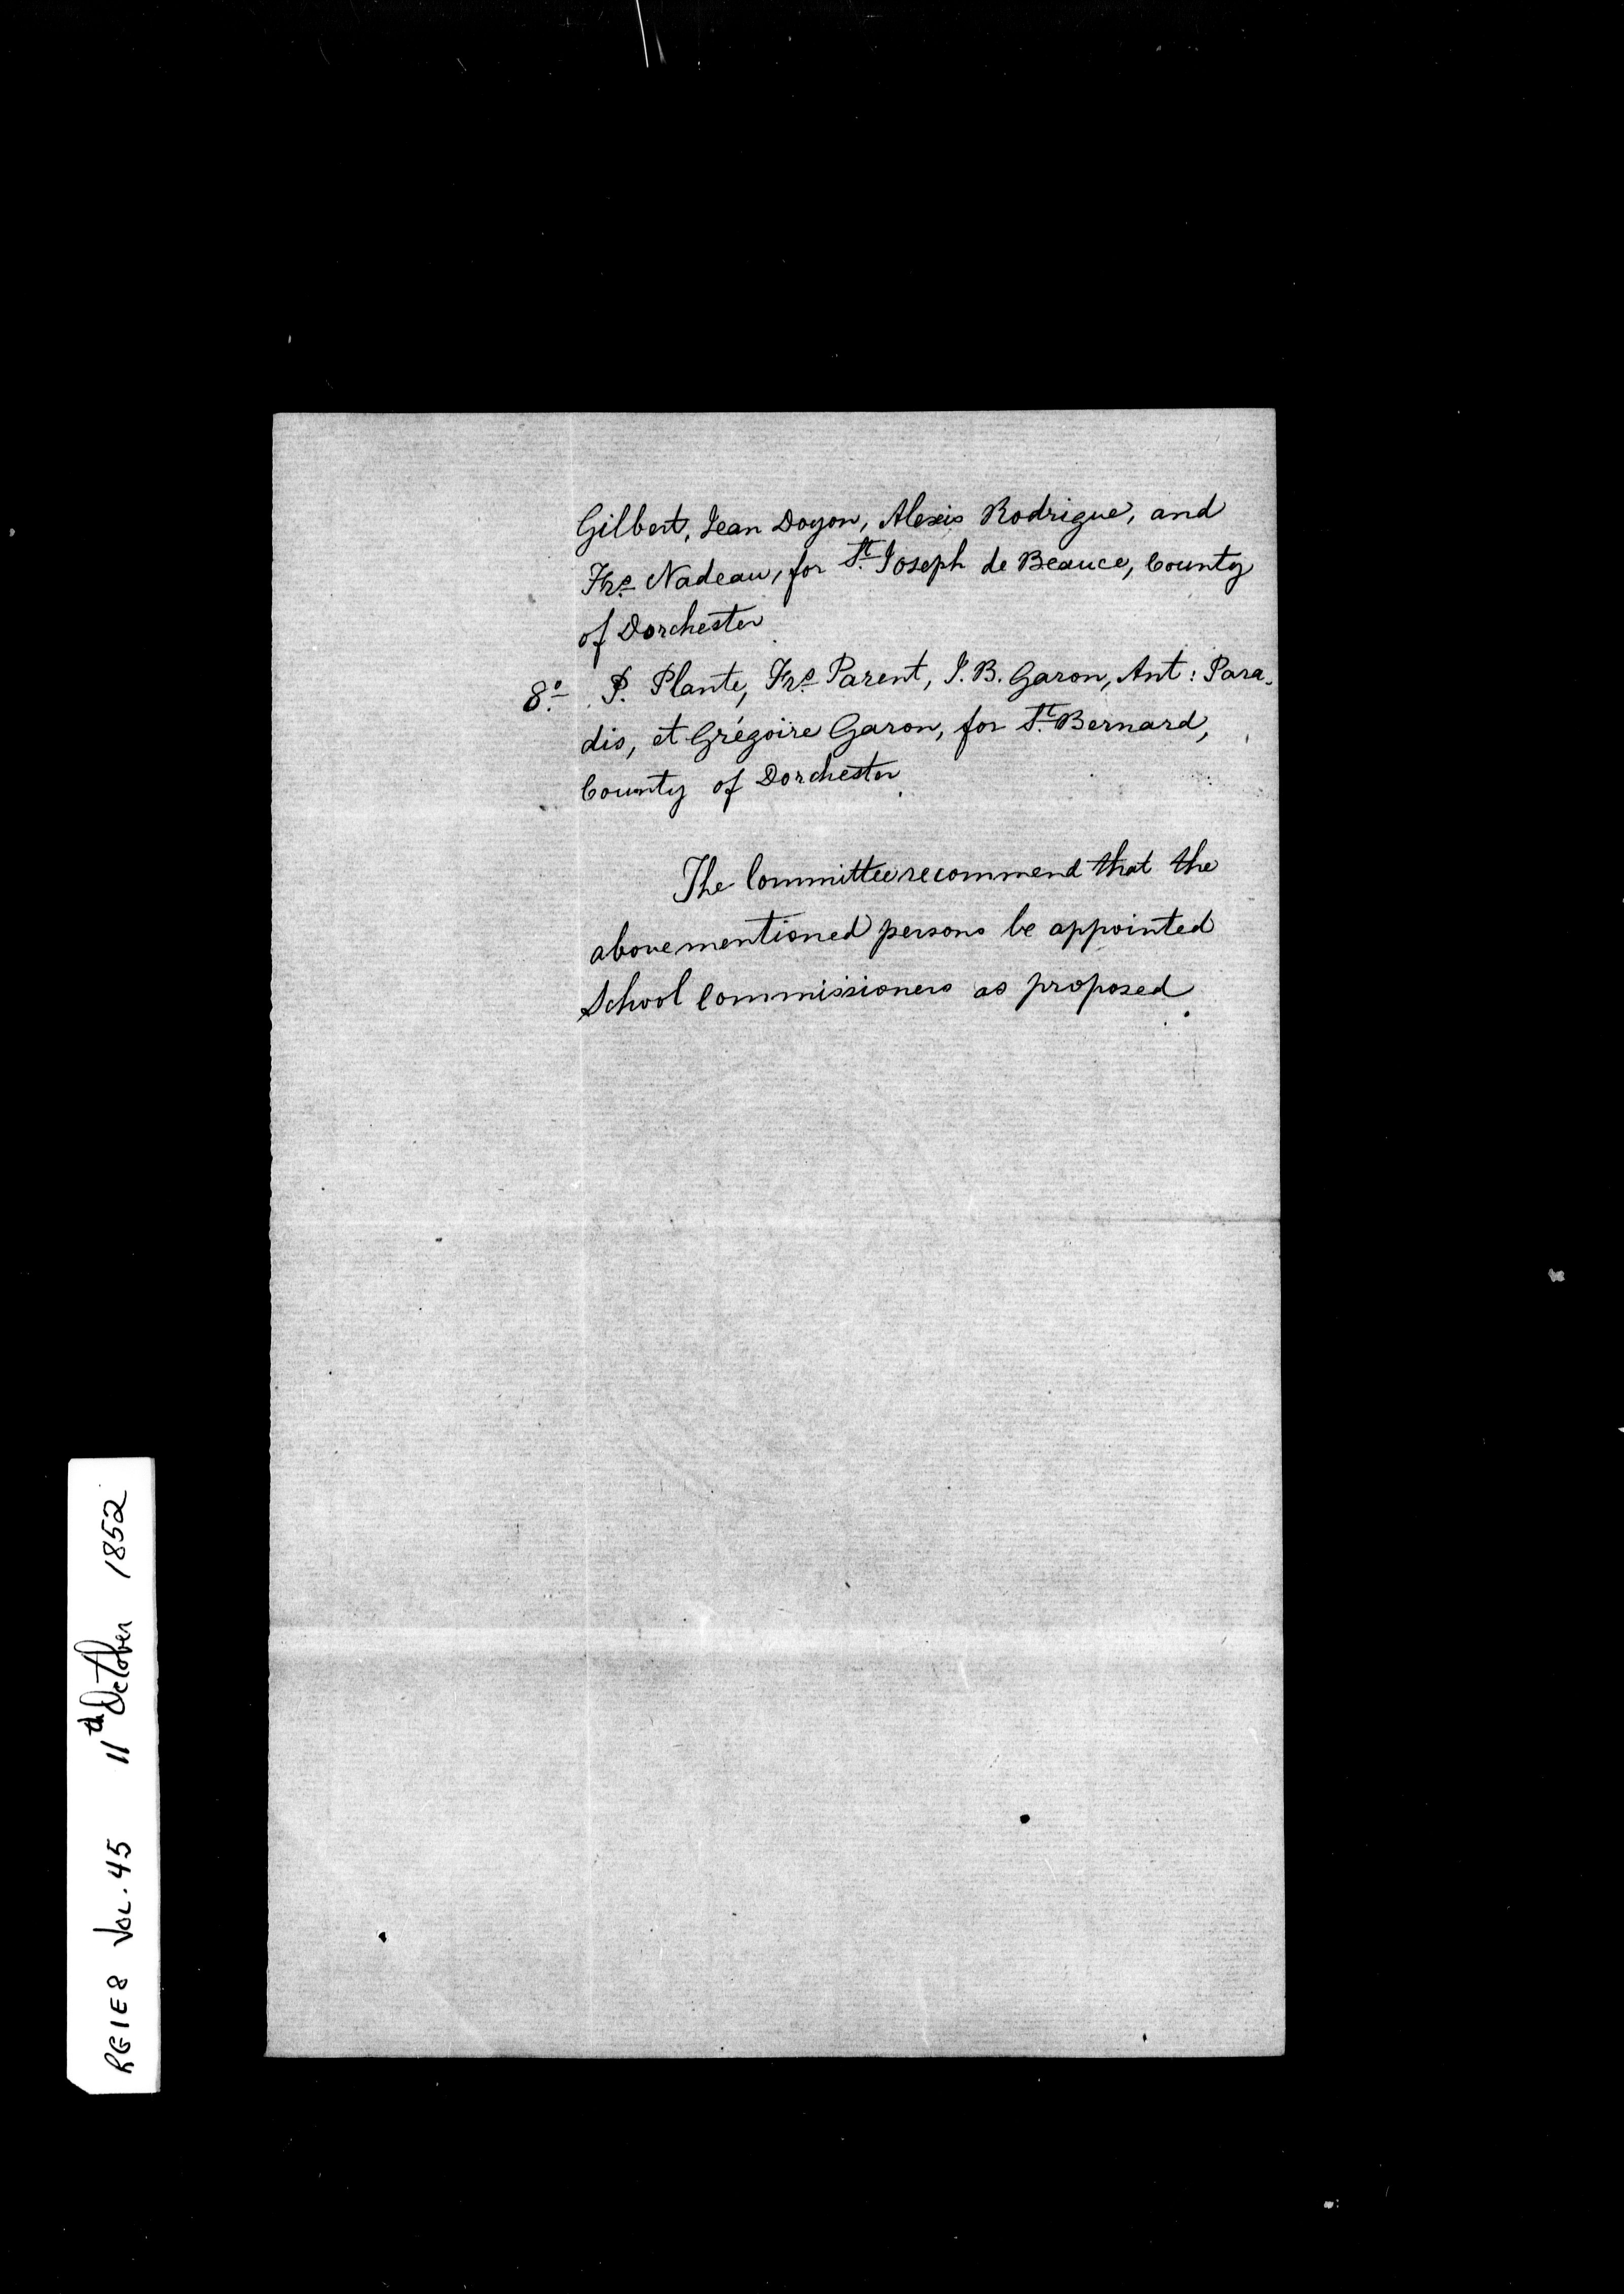 Gilbert, Jean Doyon, Alexis Rodrigue, and
Frs Nadeau, for St. Joseph de Beauce, County
of Dorchester
8o. P. Plante, Frs Parent, J. B. Garon, Ant: Para-
dis, et Grégoire Garon, for St. Bernard,
County of Dorchester.
The Committee recommend that the
above mentioned persons be appointed
School Commissioners as proposed.
RG1E8 VOL. 45 11th October 1852